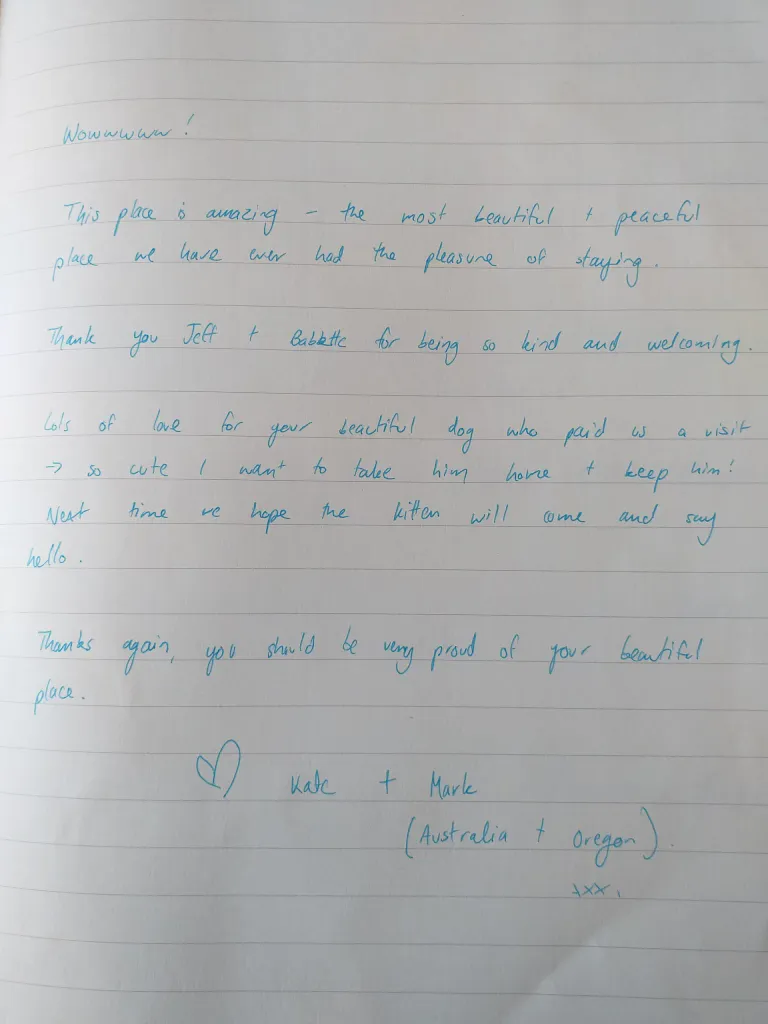 Wowwwww!
This place is amazing – the most beautiful + peaceful
place we have ever had the pleasure of staying.
Thank you Jeff + Babbette for being so kind and welcoming.
Lots of love for your beautiful dog who paid us a visit
→ so cute I want to take him home + keep him!
Next time we hope the kitten will come and say
hello.
Thanks again, you should be very proud of your beautiful
place.
♡ Kate + Mark
(Australia + Oregon).
xxx.